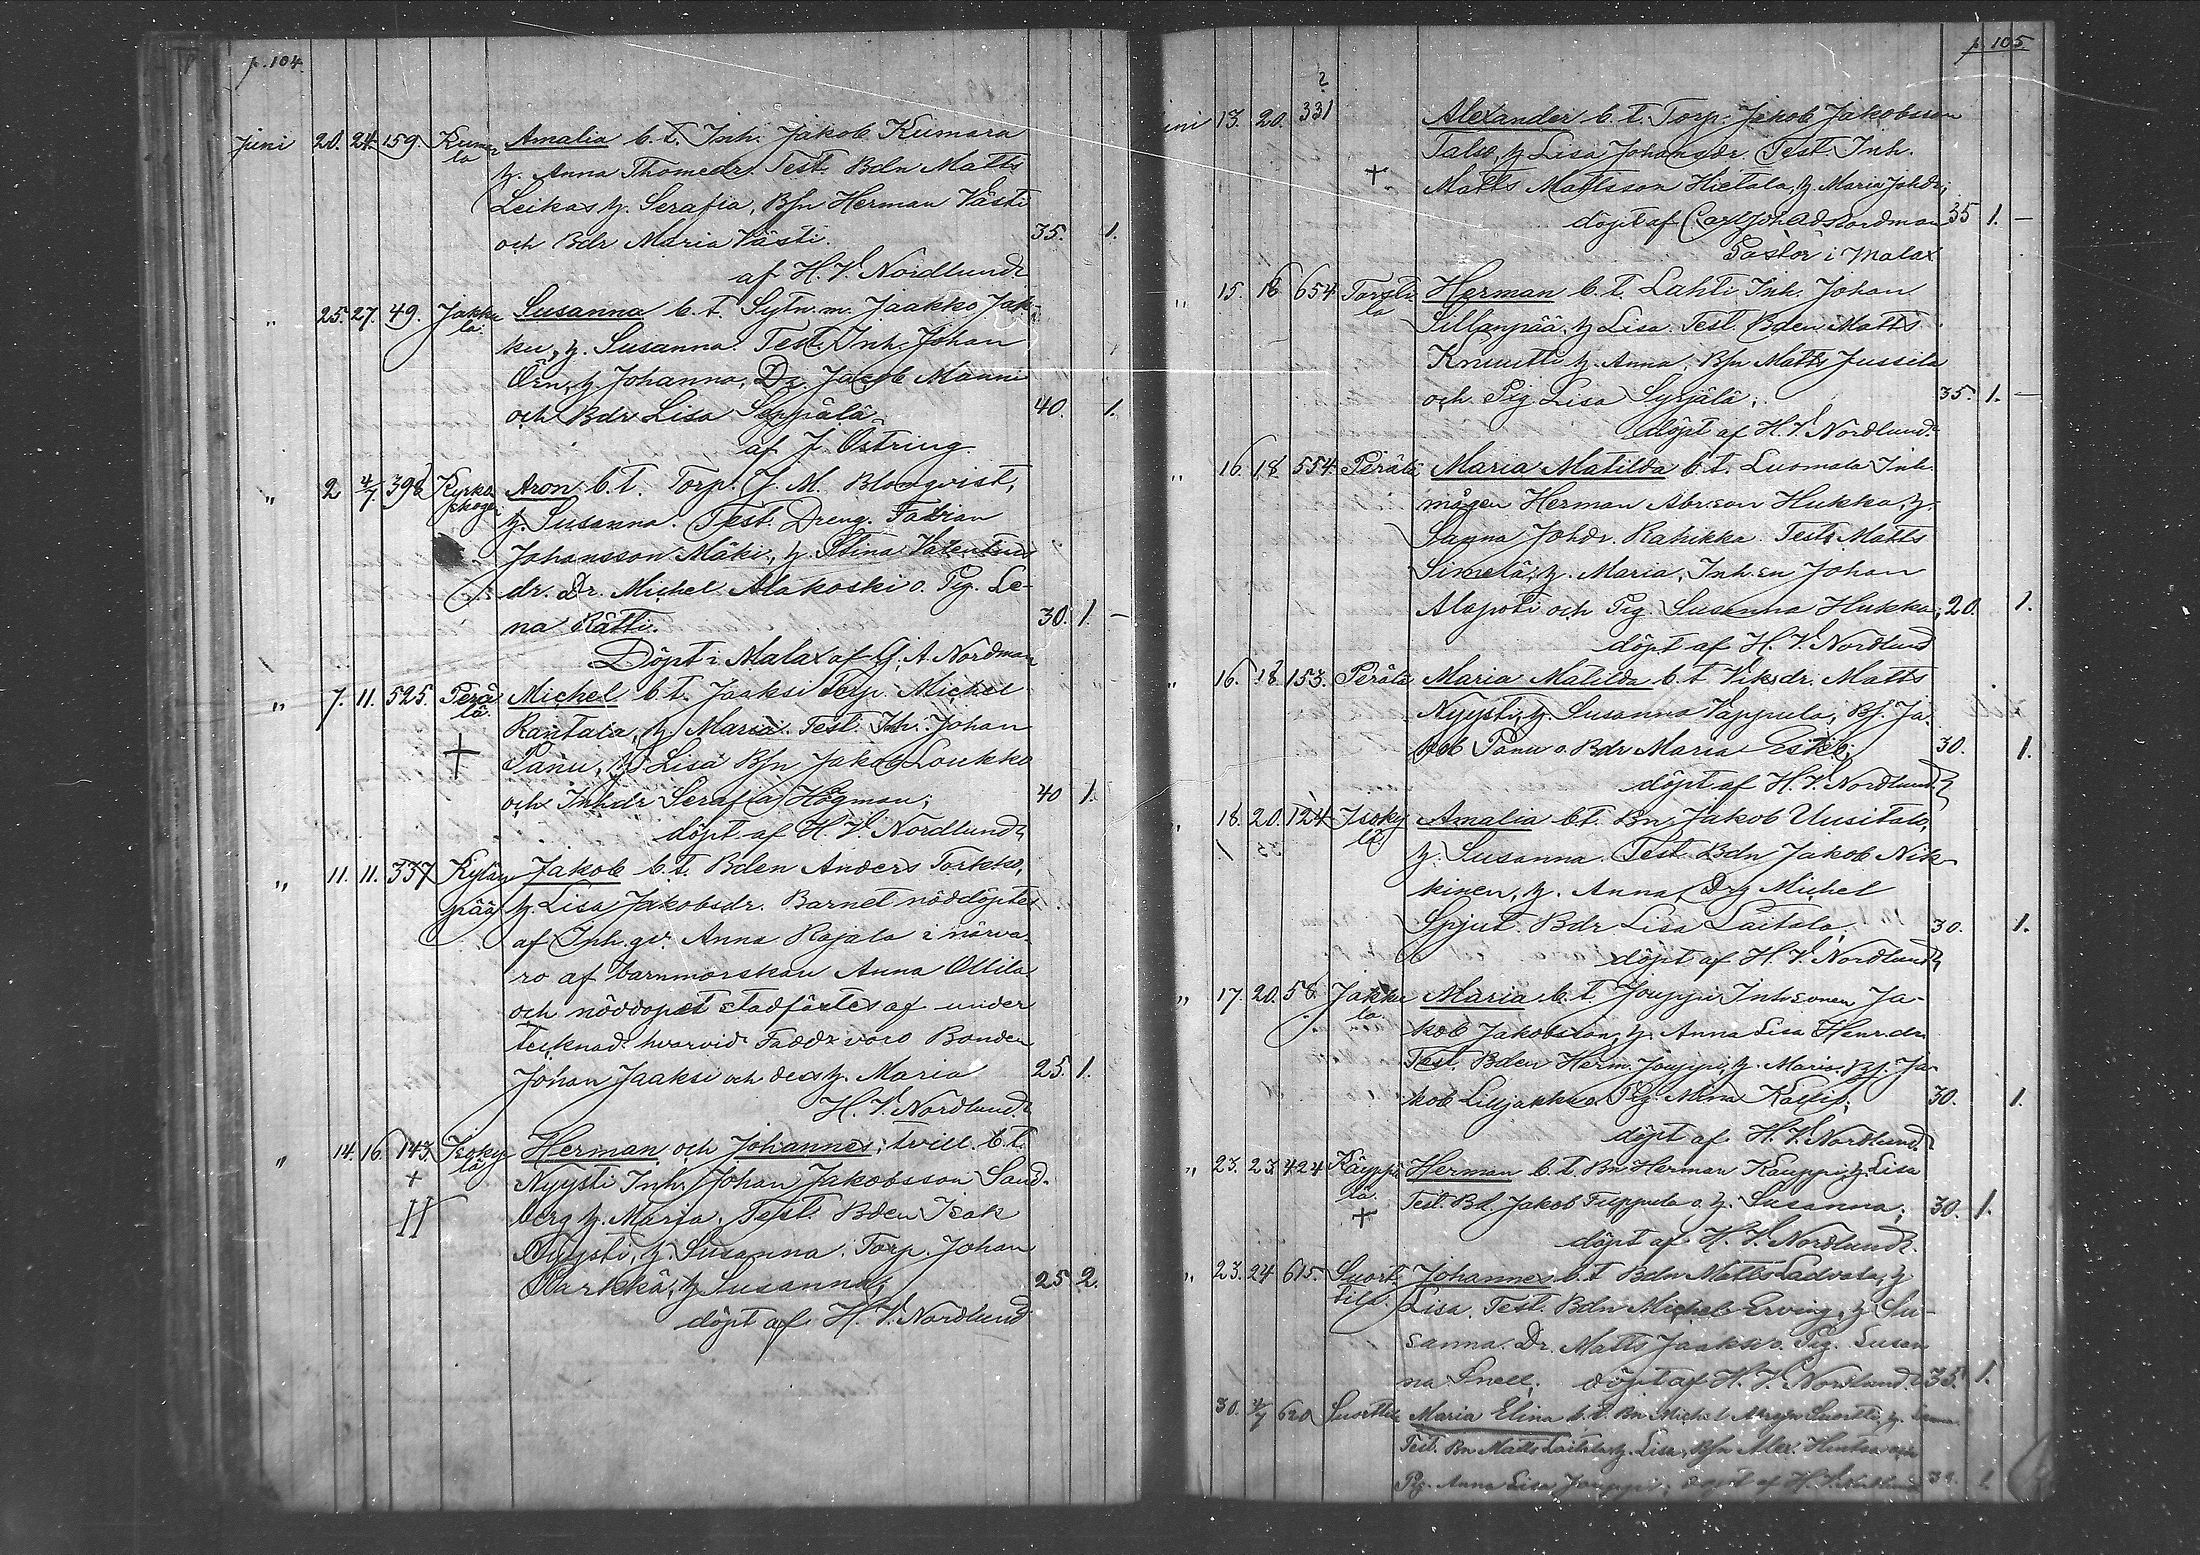 p. 104
Juni 20. 24. 159. Kumo Amalia b. t. Inh. Jakob Kumara
la h. Anna Thomedr. Test. Bdn Matts
Leikas h. Serafia, Bsn Herman Västi
och Bdr Maria Västi. 35. 1.
af H. V. Nordlund
" 25. 27. 49. Jakku Susanna b. t. Sytn. m. Jaakko Jak-
la. ku, h. Susanna. Test. Inh. Johan
Örn, h. Johanna, Dr. Jacob Manni
och Bdr Lisa Seppälä. 40. 1.
af J. Östring.
" 2 4/7 398 Kyrko Aron b. t. Torp. J. M. Blomqvist,
skogen h. Susanna. Test. Dreng. Fabian
Johansson Mäki, h. Stina Valentins
dr. Dr. Michel Alakoski o. Pig. Le-
na Rätti. 30. 1. —
Döpt i Malax af G. A. Nordman
" 7. 11. 525. Perä Michel b. t. Jaaksi Torp. Michel
lä. Rantala, h. Maria. Test. Inh. Johan
+ Panu, h. Lisa Bsn Jakob Loukko
och Inhdr Serafia Högman; 40 1.
döpt af H. V. Nordlund
" 11. 11. 337 Kylän Jakob b. t. Bden Anders Torkko,
pää h. Lisa Jakobsdr. Barnet nöddöptes
af Inh. gv. Anna Rajala i närva-
ro af barnmorskan Anna Ollila
och nöddopet stadfästes af under
tecknad hvarvid Faddr voro Bonden
Johan Jaaksi och dess h. Maria 25. 1.
H. V. Nordlund
" 14. 16. 143. Isoky Herman och Johannes, tvill. b. t.
+ lä Nyysti Inh. Johan Jakobsson Sand-
berg h. Maria. Test. Bden Isak
Nyysti, h. Susanna. Torp. Johan
Harkkä, h. Susanna; 25 2.
döpt af H. V. Nordlund
p. 105
?
uni 13. 20. 331 Alexander b. t. Torp. Jakob Jakobsson
Talso, h. Lisa Johansdr. Test. Inh.
+ Matts Mattsson Hietala, h. Maria Johdr;
döpt af Carl Joh Ad Nordman 35 1. —
Pastor i Malax
" 15. 16 654 Torstila Herman b. t. Lahti Inh. Johan
Sillanpää, h. Lisa. Test. Bden Matts
Knuutti h. Anna, Bsn Matts Jussila
och Pig Lisa Syrjälä; 35. 1. —
döpt af H. V. Nordlund.
" 16. 18. 554. Perälä Maria Matilda b. t. Luomala Inh.
mågen Herman Abrson Hukka, h.
Sanna Johdr. Rahikka. Test. Matts
Simelä, h. Maria, Inh. en Johan
Alapoti och Pig. Susanna Hukka; 20. 1.
döpt af H. V. Nordlund
" 16. 18. 153. Perälä Maria Matilda b. t. Viksdr. Matts
Nyysti, h. Susanna Vappula, Bs. Ja-
kob Panu o. Bdr Maria Eskib; 30. 1.
döpt af H. V. Nordlund
" 18. 20. 124 Isoky Amalia b. t. Bn Jakob Uusitalo,
lä. h. Susanna. Test. Bdn Jakob Nik-
kinen, h. Anna, Drg Michel
Spjut. Bdr Lisa Laitala. 30. 1.
döpt af H. V. Nordlund
" 17. 20. 58. Jakku Maria b. t. Jouppi Inhsonen Ja-
la. kob Jakobsson, h. Anna Lisa Henr.dr.
Test. Bden Herm. Jouppi, h. Maria. Bs. Ja-
kob Lilljakku o. Pig. Mina Kallio; 30. 1.
döpt af H. V. Nordlund
" 23. 23. 424 Käuppi Herman b. t. Bn Herman Kauppi, h. Lisa
lä. Test. Bd. Jakob Filppula o. h. Susanna; 30. 1.
+ döpt af H. V. Nordlund.
" 23. 24 615. Suort Johannes b. t. Bdn Matts Ladvala, h
tila. Lisa. Test. Bdn Michel Erving, h Su-
sanna. Dr. Matts Jaakso o. Pig. Susan
na Snell; döpt af H. V. Nordlund. 35. 1.
30. 4/7 620 Suorttila Maria Elina b. t. Bn Michel Suortti, h.
Test. Bn Matts Laitala h. Lisa, Bsn Alex. Hintsa och
Pig. Anna Lisa Jouppi; döpt af H. V. Nordlund 1.